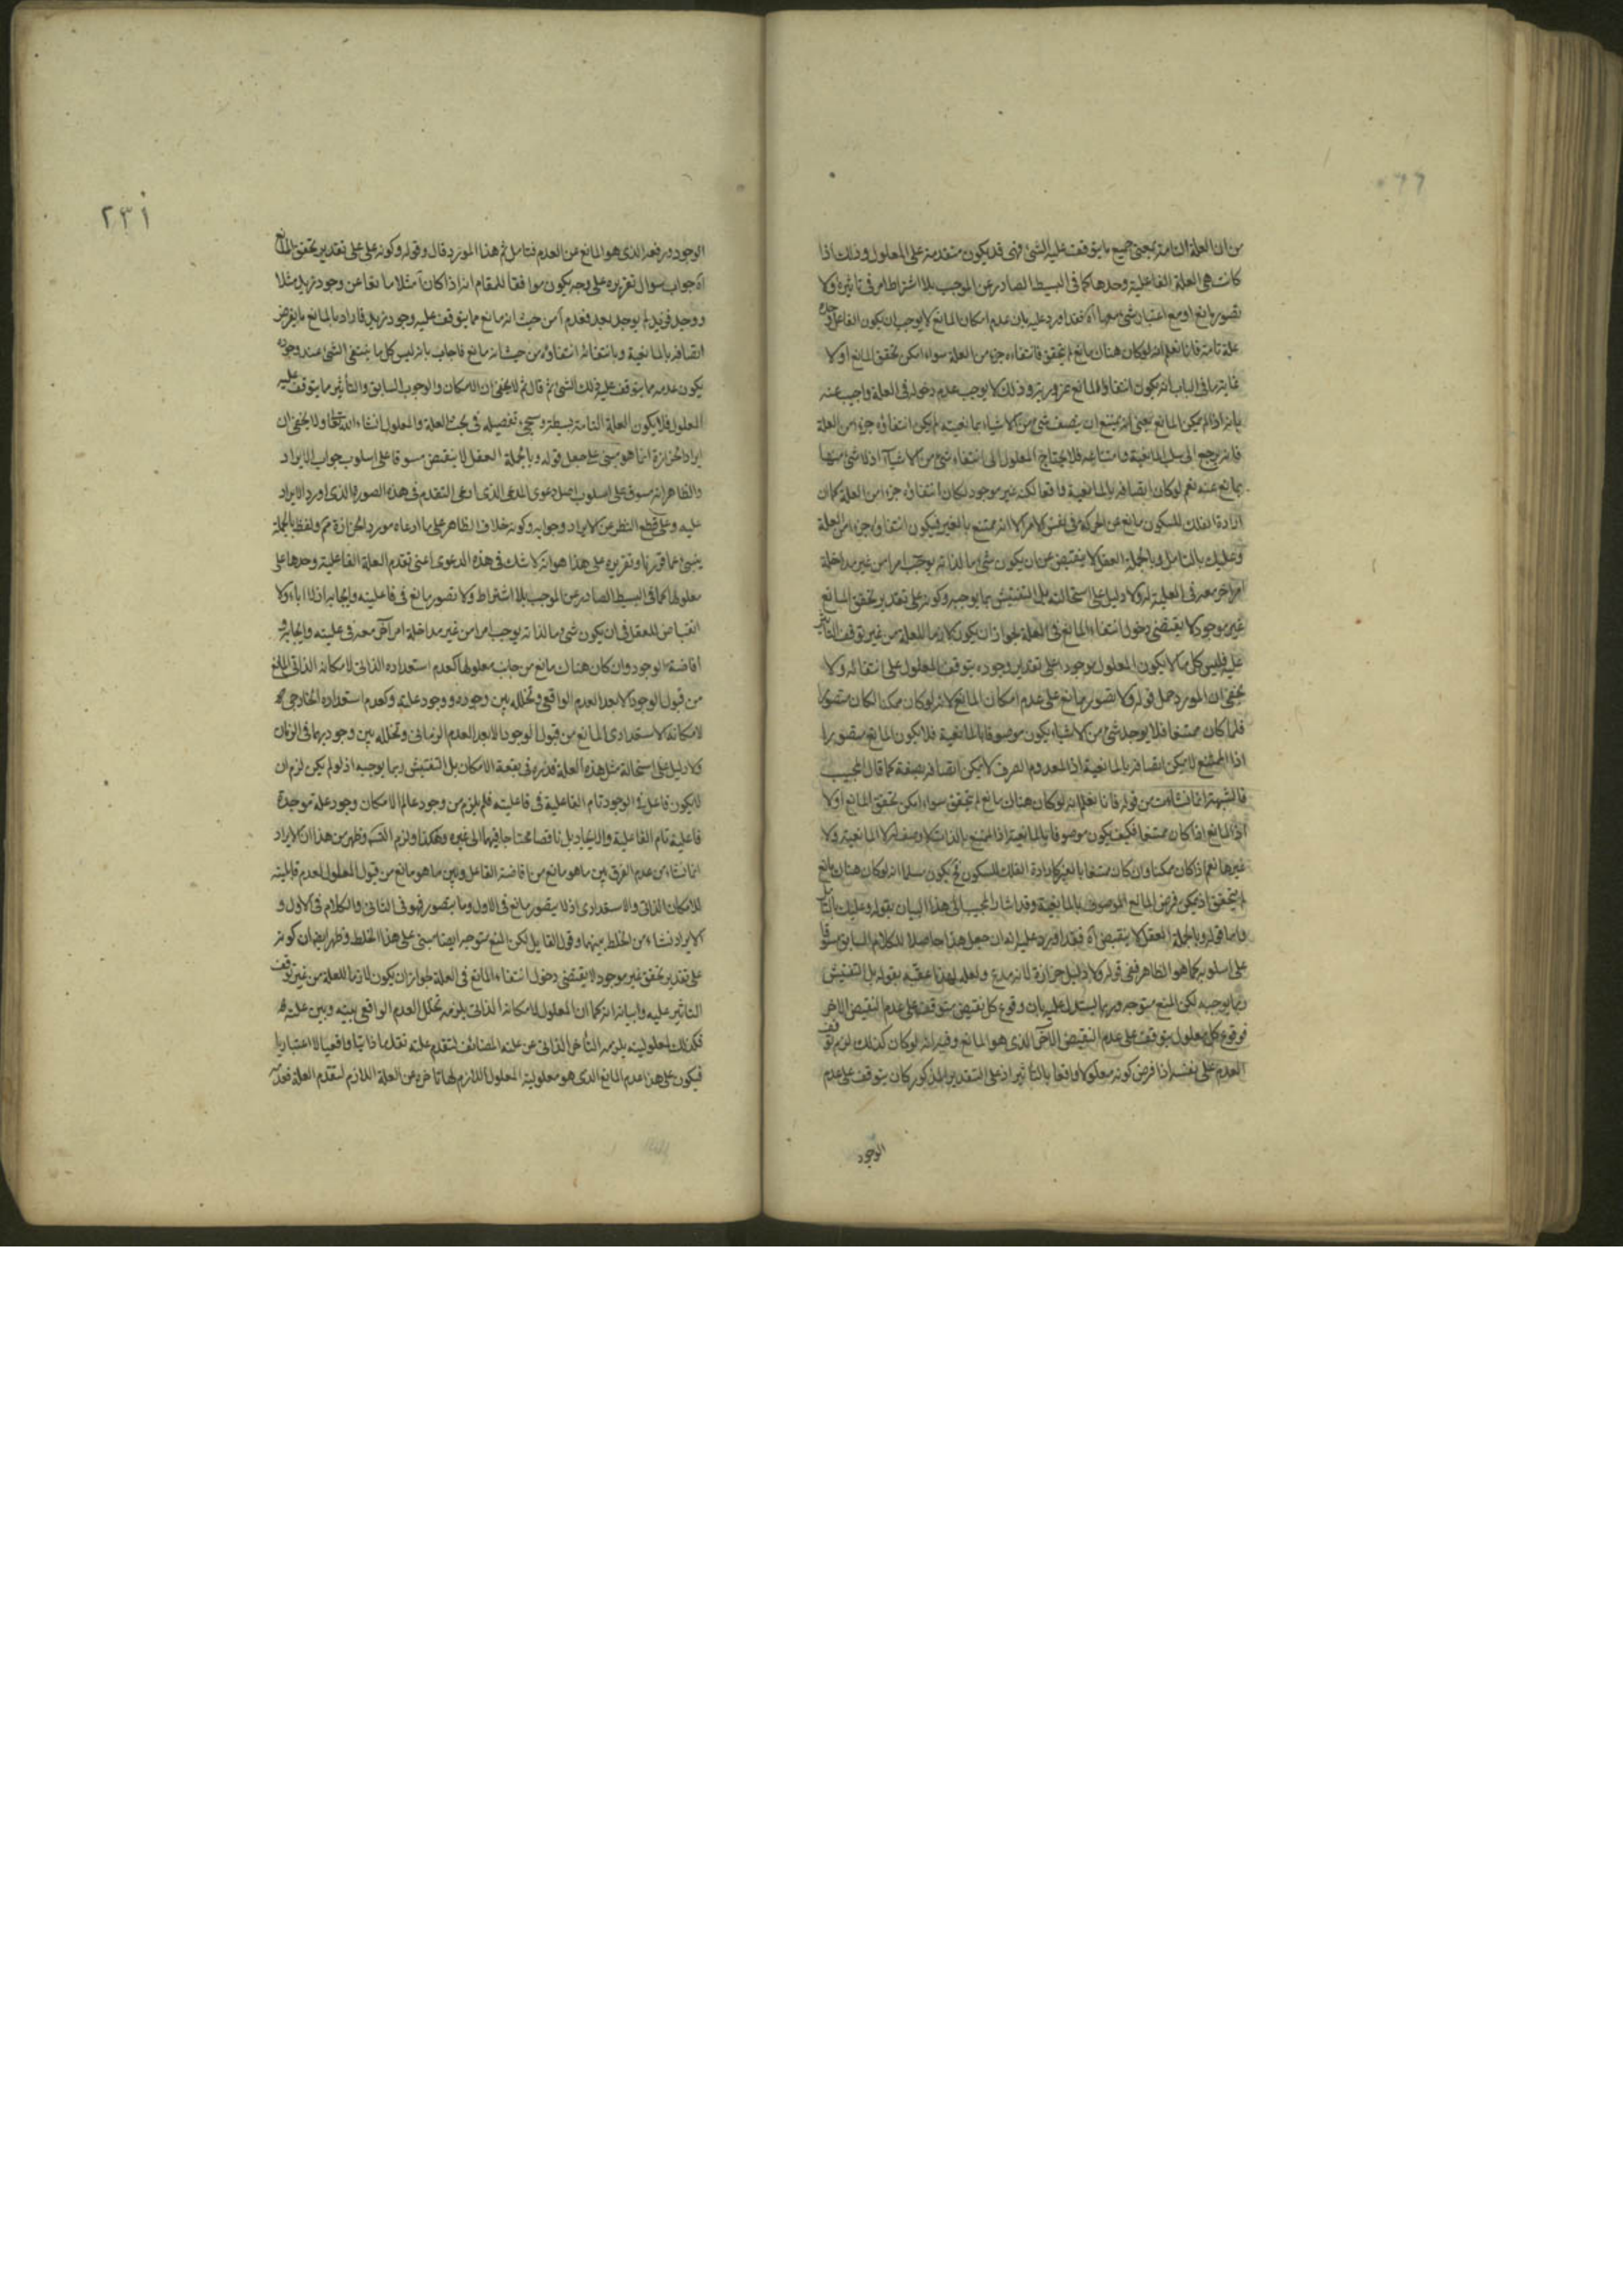 من ان العلة التامة بمعنى جميع ما يتوقف عليه الشئ فهى قد يكون متقدمة على المعلول وذلك اذا
كانت هى العلة الفاعلية وحدها كما فى البسيط الصادر عن الموجب بلا اشتراط امر فى تاثيره ولا
تصور مانع او مع اعتبار شئ معها آه فقد اورد عليه بان عدم امكان المانع لا يوجب ان يكون الفاعل وحده
علة تامة فانا نعلم انه لو كان هناك مانع لم يتحقق فانتفاءه جزء من العلة سواء امكن تحقق المانع اولا
غاية ما فى الباب انه يكون انتفاؤ المانع ضروريا وذلك لا يوجب عدم دخوله فى العلة واجيب عنه
بانه اذا لم يمكن المانع بمعنى انه يمتنع ان يتصف شئ من الاشياء بمانعيته لم يكن انتفاؤه جزء من العلة
فانه يرجع الى سلب المانعية وامتناعه فلا يحتاج المعلول الى انتفاء شئ من الاشياء اذ لا شئ منها
بمانع عنه نعم لو كان اتصافه بالمانعية واقعا لكنه غير موجود لكان انتفاؤه جزء من العلة كما ان
ارادة الفلك للسكون مانع عن الحركة فى نفس الامر الا انه ممتنع بالغير فيكون انتفاؤه جزء من العلة
وعليك بالتامل وبالجملة العقل لا ينقبض عن ان يكون شئ ما لذاته يوجب امرا من غير مداخلة
امر اخر معه فى العلية له ولا دليل على استحالته بل التفتيش ربما يوجبه وكونه على تقدير تحقق المانع
غير موجود لا يقتضى دخول انتفاء المانع فى العلة لجواز ان يكون لازما للعلة من غير توقف التاثير
عليه فليس كل ما لا يكون المعلول موجودا على تقدير وجوده يتوقف المعلول على انتفائه ولا
يخفى ان المورد حمل قوله ولا تصور مانع على عدم امكان المانع لانه لو كان ممكنا لكان متصورا
فلما كان ممتنعا فلا يوجد شئ من الاشياء يكون موصوفا بالمانعية فلا يكون المانع متصورا
اذ الممتنع لا يمكن اتصافه بالمانعية اذ المعدوم الصرف لا يمكن اتصافه بصفة كما قال المجيب
فالشبهة انما نشات من قوله فانا نعلم انه لو كان هناك مانع لم يتحقق سواء امكن تحقق المانع اولا
اذ المانع اذا كان ممتنعا فكيف يكون موصوفا بالمانعية اذ الممتنع بالذات لا وصف له لا المانعية ولا
غيرها نعم اذا كان ممكنا وان كان ممتنعا بالغير كارادة الفلك للسكون فح يكون مسلما انه لو كان هناك مانع
لم يتحقق اذ يمكن فرض المانع الموصوف بالمانعية وقد اشار المجيب الى هذا البيان بقوله وعليك بالتامل
واما قوله وبالجملة العقل لا ينقبض آه فقد اورد عليه انه ان جعل هذا حاصلا للكلام السابق مسوقا
على اسلوبه كما هو الظاهر ففى قوله ولا دليل حزازة لانه مدع ولعله لهذا عقبه بقوله بل التفتيش
ربما يوجبه لكن المنع متوجه وربما يستدل عليه بان وقوع كل نقيض يتوقف على عدم النقيض الاخر
فوقوع كل معلول يتوقف على عدم النقيض الآخر الذى هو المانع وفيه انه لو كان كذلك لزم توقف
العدم على نفسه اذا فرض كونه معلولا واقعا بالتاثير اذ على التقدير المذكور كان يتوقف على عدم
الوجود
٢٣١
الوجود ورفعه الذى هو المانع عن العدم فتامل ثم هذا المورد قال وقوله وكونه على تقدير تحقق المانع
آه جواب سوال تقريره على وجه يكون موافقا للمقام انه اذا كان آ مثلا مانعا عن وجود زيد مثلا
ووجد فزيد لم يوجد بعد فعدم آ من حيث انه مانع مما يتوقف عليه وجود زيد فاراد بالمانع ما يفرض
اتصافه بالمانعية وبانتفائه انتفاؤه من حيث انه مانع فاجاب بانه ليس كل ما ينتفى الشئ عند وجوده
يكون عدمه مما يتوقف عليه ذلك الشئ ثم قال ثم لا يخفى ان الامكان والوجوب السابق والتأثير مما يتوقف عليه
المعلول فلا يكون العلة التامة بسيطة وسيجئ تفصيله فى بحث العلة والمعلول انشاء الله تعالى ولا يخفى ان
ايراد الحزازة انما هو مبنى على جعل قوله وبالجملة العقل لا ينقبض مسوقا على اسلوب جواب الايراد
والظاهر انه مسوق على اسلوب اصل دعوى المدعى الذى ادعى التقدم فى هذه الصورة الذى اورد الايراد
عليه وعلى قطع النظر عن الايراد وجوابه وكونه خلاف الظاهر على ما ادعاه مورد الحزازة مم ولفظ بالجملة
ينبئ عما قررنا وتقريره على هذا هو انه لا شك فى هذه الدعوى اعنى تقدم العلة الفاعلية وحدها على
معلولها كما فى البسيط الصادر عن الموجب بلا اشتراط ولا تصور مانع فى فاعليته وايجابه اذ لا اباء ولا
انقباض للعقل فى ان يكون شئ ما لذاته يوجب امرا من غير مداخلة امر آخر معه فى عليته وايجابه و
افاضة الوجود وان كان هناك مانع من جانب معلولها كعدم استعداده الذاتى لامكانه الذاتى المانع
من قبول الوجود الا بعد العدم الواقعى وتخلله بين وجوده ووجود علته وكعدم استعداده الخارجى
لامكانه الاستعدادى المانع من قبول الوجود الا بعد العدم الزمانى وتخلله بين وجوديهما فى الزمان
ولا دليل على استحالة مثل هذه العلة فى بقعة الامكان بل التفتيش ربما يوجبه اذ لو لم يكن لزم ان
لا يكون فاعل الوجود تام الفاعلية فى فاعليته فلم يلزم من وجود عالم الامكان وجود علة موجدة
فاعلية تام الفاعلية والايجاد بل ناقصا محتاجا فيهما الى غيره وهكذا ولزم التسلسل وظهر من هذا ان الايراد
انما نشاء من عدم الفرق بين ما هو مانع من افاضة الفاعل وبين ما هو مانع من قبول المعلول لعدم قابليته
للامكان الذاتى والاستعدادى اذ لا يتصور مانع فى الاول وما يتصور فهو فى الثانى والكلام فى الاول و
الايراد نشاء من الخلط بينهما وقول القايل لكن المنع متوجه ايضا مبنى على هذا الخلط وظهر ايضا ان كونه
على تقدير تحقق غير موجود لا يقتضى دخول انتفاء المانع فى العلة لجواز ان يكون لازما للعلة من غير توقف
التاثير عليه وبيانه انه كما ان المعلول لامكانه الذاتى يلزمه تخلل العدم الواقعى بينه وبين علته
فكذلك لمعلوليته يلزمه التأخر الذاتى عن علته المضائف لتقدم علته تقدما ذاتيا واقعيا لا اعتباريا
فيكون على هذا عدم المانع الذى هو معلولية المعلول اللازم لها تاخره عن العلة اللازم لتقدم العلة